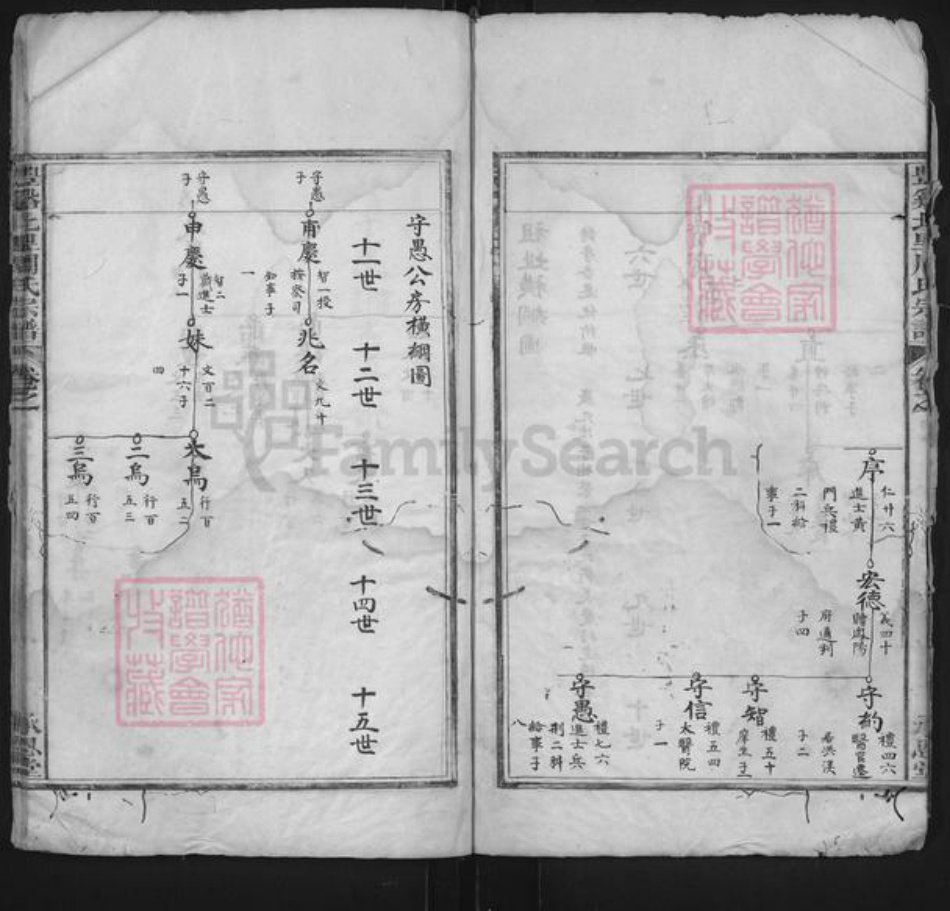 序
仁廿六
進士黃
門兵禮
二科給
事子一
宏德
義四十
時鄖陽
府通判
子四
守約
禮四六
醫官遷
子二
守智
禮五十
庠生子
守信
禮五四
太醫院
子一
守愚
禮七六
進士兵
刑二科
給事子
八
守愚公房橫綱圖
十一世
十二世
十三世
十四世
十五世
守愚
子
甫慶
智一授
按察司
知事子
一
兆名
文九十
守愚
子
申慶
智二
子一
妹
文百二
十六子
四
大烏
行百
五二
二烏
行百
五三
三烏
行百
五四
FamilySearch